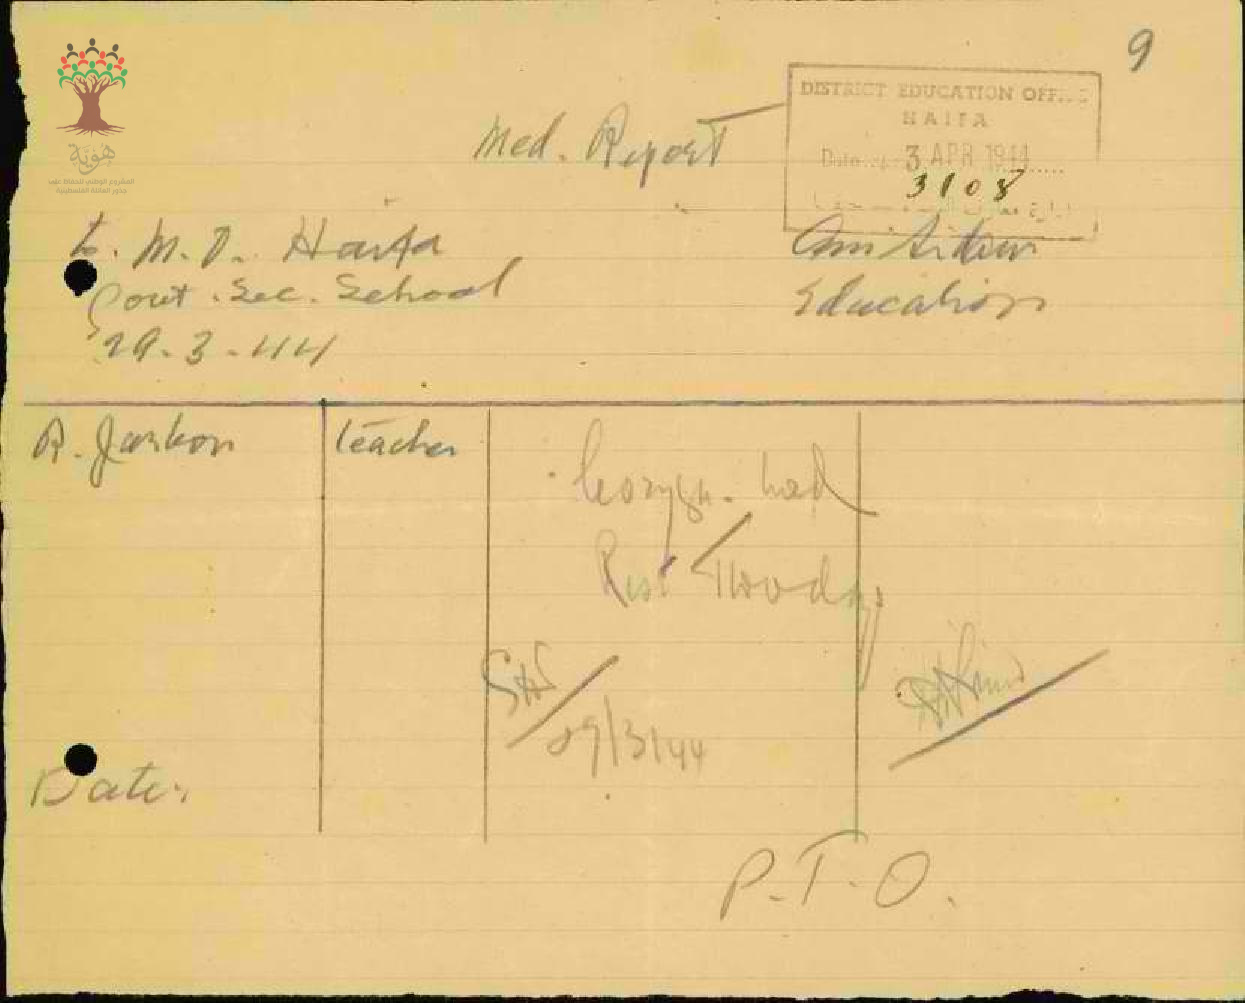 9
DISTRICT EDUCATION OFFICE
HAIFA
Date 3 APR 1944
3108
Med. Report
هوية
المشروع الوطني للحفاظ على
جذور العائلة الفلسطينية
M.O. Haifa
Education
Govt. Sec. School
29-3-44
R. Jarkon
teacher
had
Rest Two days
29/3/44
Date:
P.T.O.